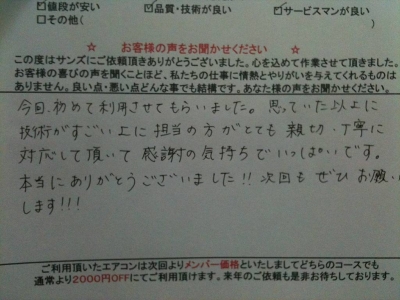 ☑値段が安い ☑品質・技術が良い ☑サービスマンが良い
□その他( )
☆ お客様の声をお聞かせください ☆
この度はサンズにご依頼頂きありがとうございました。心を込めて作業させて頂きました。
お客様の喜びの声を聞くことほど、私たちの仕事に情熱とやりがいを与えてくれるものは
ありません。良い点・悪い点どんな事でも結構です。あなた様の声をお聞かせください。
今回、初めて利用させてもらいました。思っていた以上に
技術がすごい上に担当の方がとても親切、丁寧に
対応して頂いて感謝の気持ちでいっぱいです。
本当にありがとうございました!!次回もぜひお願い
します!!!
ご利用頂いたエアコンは次回よりメンバー価格といたしましてどちらのコースでも
通常より2000円OFFにてご利用頂けます。来年のご依頼も是非お待ちしております。